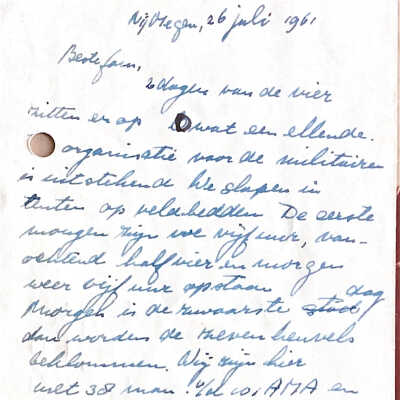 Nijmegen, 26 juli 1961
Beste fam,
2 dagen van de vier
zitten er op wat een ellende.
organisatie voor de militairen
is uitstekend We slapen in
tenten op veldbedden De eerste
morgen zijn we vijf uur, van-
ochtend half vier en morgen
weer vijf uur opstaan
Morgen is de zwaarste dag
dan worden de zevenheuvels
beklommen. Wij zijn hier
met 38 man. AMA en